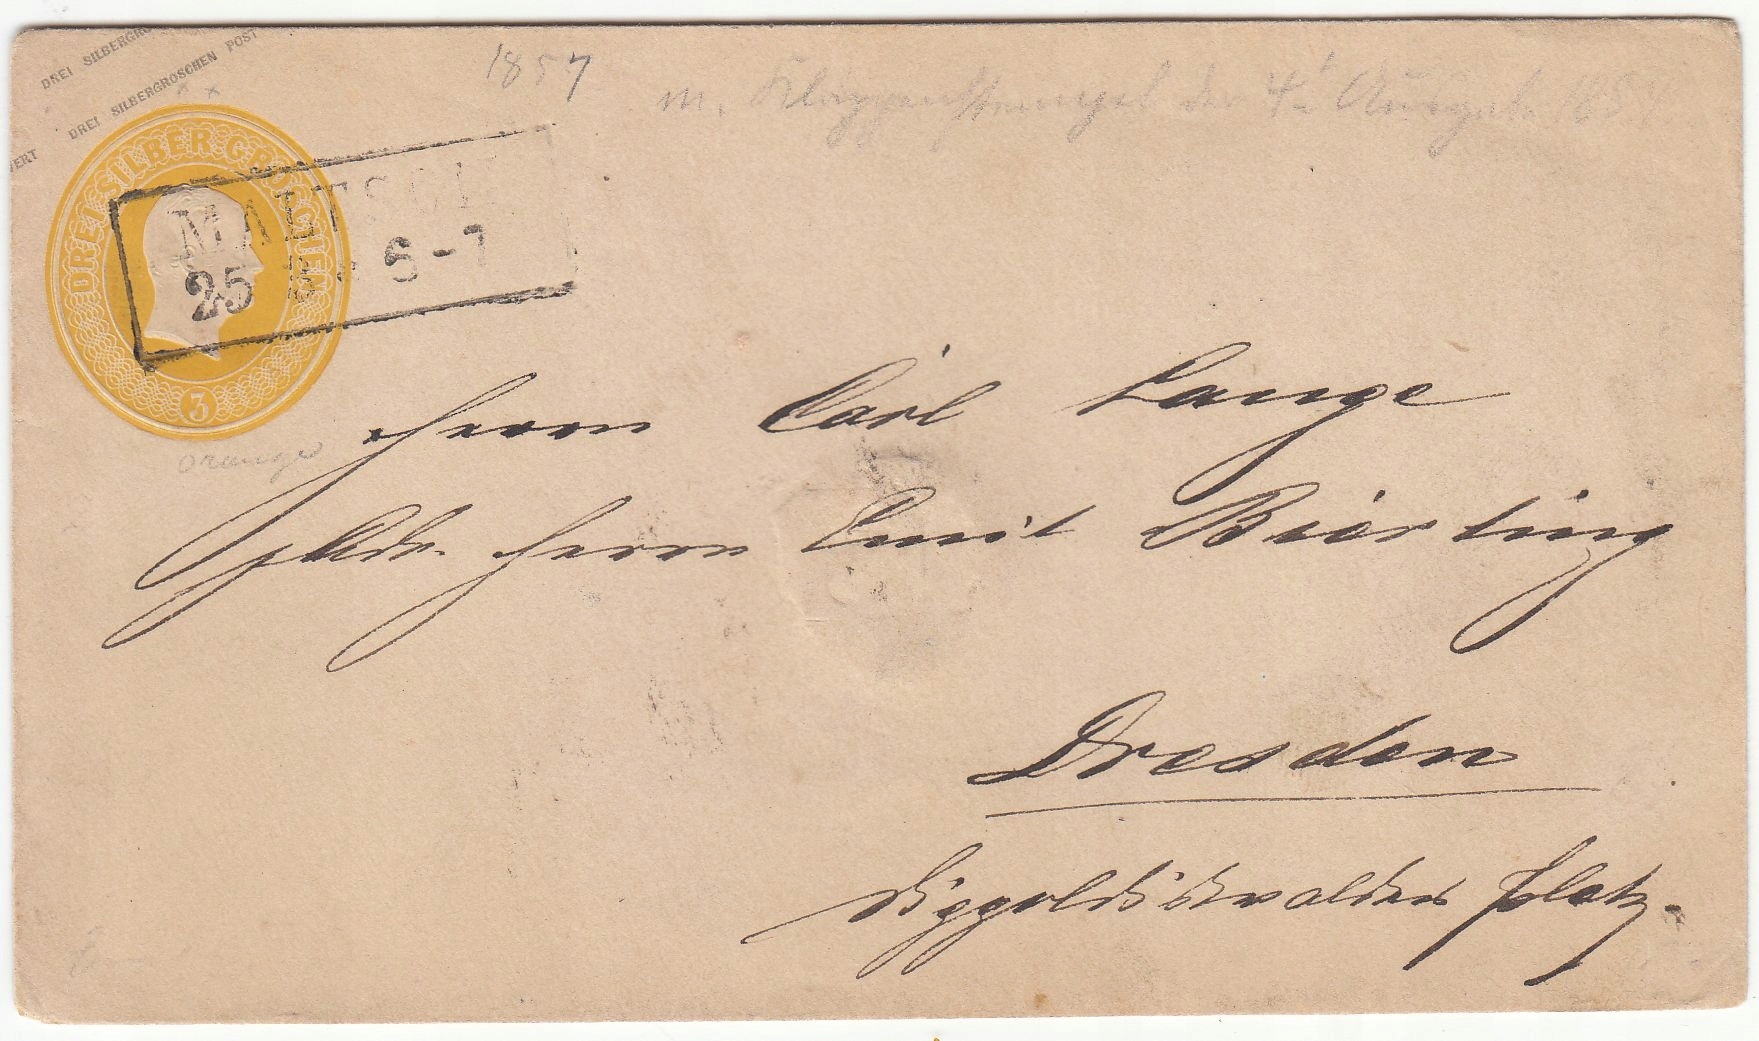 DREI SILBERGRO
DREI SILBERGROSCHEN POST
WERT
1857
m. Klappenstempel der 4t Ausgabe 185
DREI SILBERGROSCHEN
3
MALTSCH
25 6-7
orange
Herrn Carl Lange
p Adr. Herrn Emil Bierling
Dresden
Dippoldiswalder Platz.